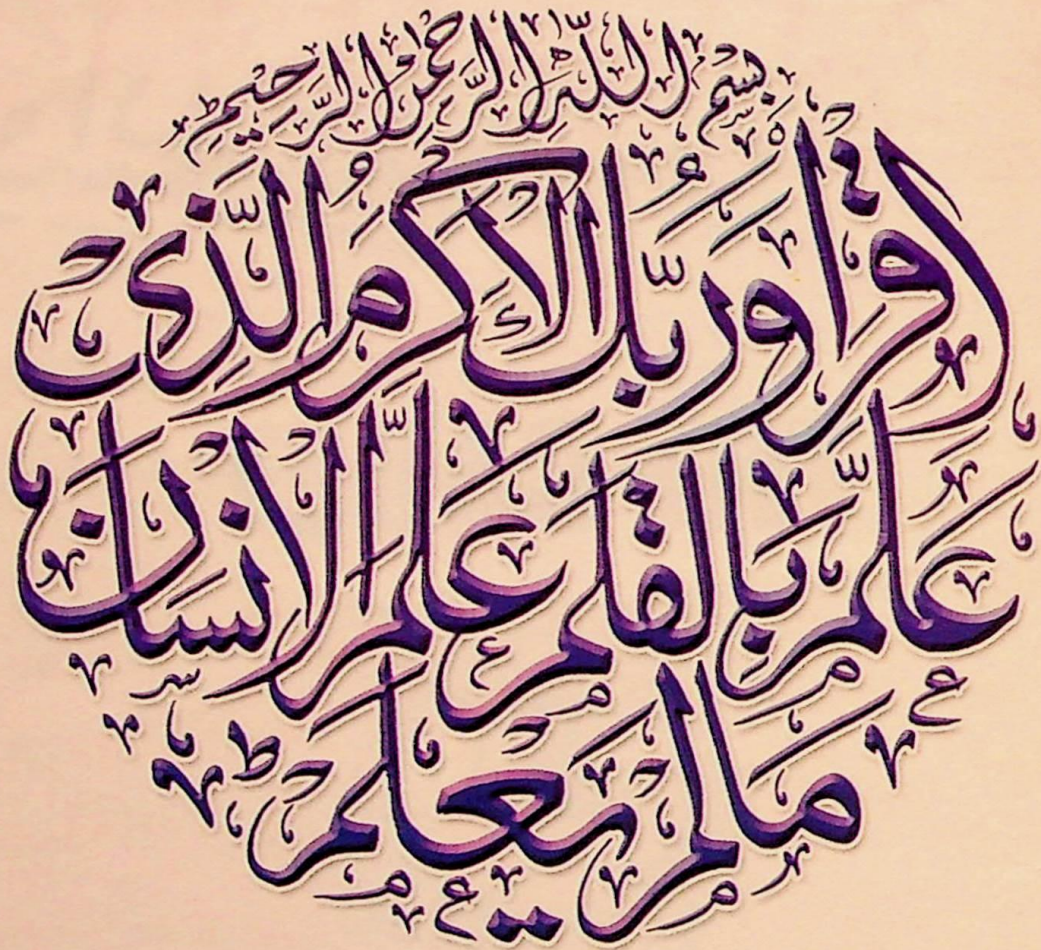 بسم الله الرحمن الرحيم
اقرا وربك الاكرم الذي
علم بالقلم علم الانسان
ما لم يعلم